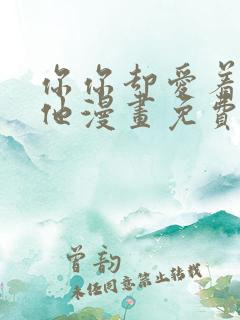 你你却愛着
他漫畫免費
曾韵
未任同意禁止转载